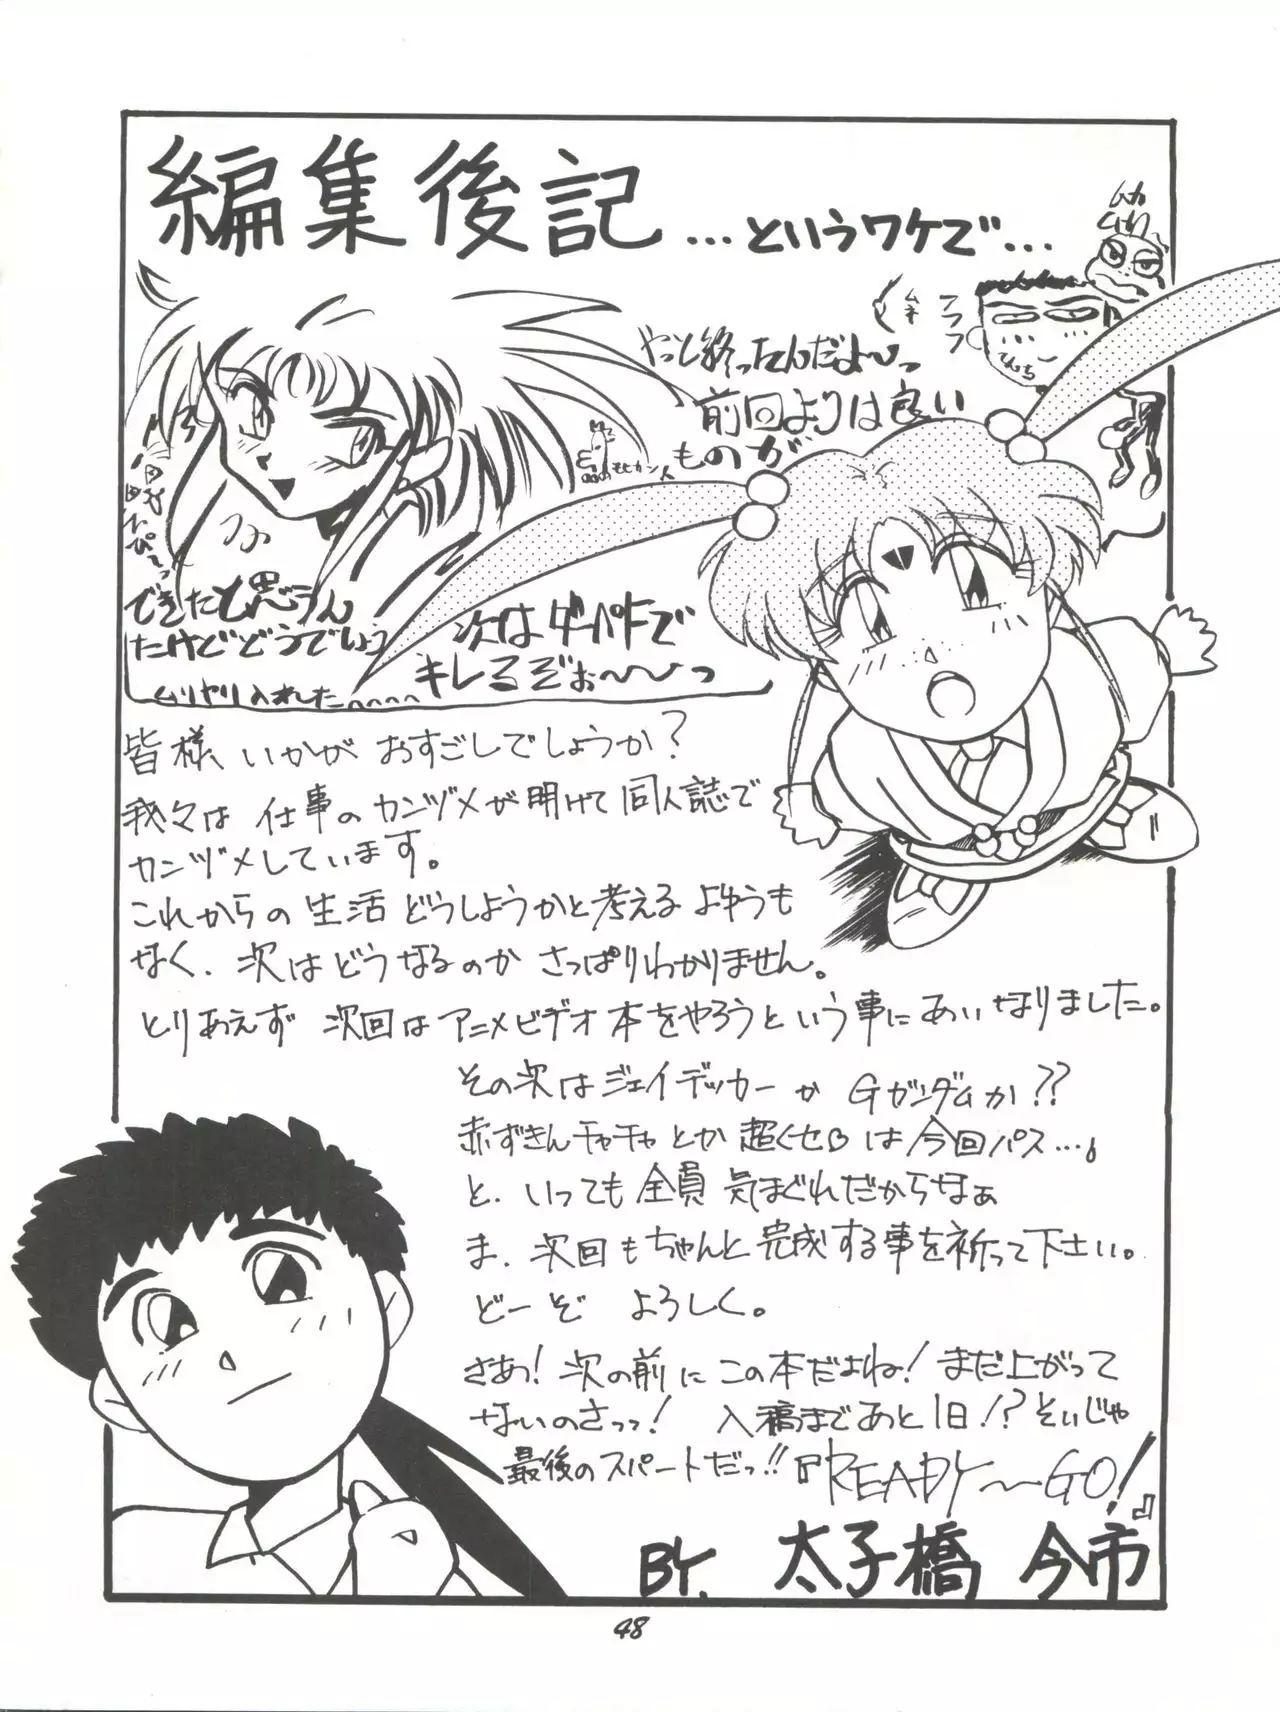 編集後記
…というワケで…
やっと終ったんだよ〜っ
前回よりは良い
ものが
できたと思うん
だけどどうでしょう
ムリヤリ入れた…
次はダーパ
キレるぞぉ〜〜っ
フフフ
モヒカン
皆様、いかがおすごしでしょうか?
我々は仕事のカンヅメが明けて同人誌で
カンヅメしています。
これからの生活どうしようかと考えるよゆうも
なく、次はどうなるのかさっぱりわかりません。
とりあえず次回はアニメビデオ本をやろうという事にあいなりました。
その次はジェイデッカーかGガンダムか??
赤ずきんチャチャとか超くせBは今回パス…。
と、いっても全員気まぐれだからなぁ
ま、次回もちゃんと完成する事を祈って下さい。
どーぞよろしく。
さあ!次の前にこの本だよね!まだ上がって
ないのさっっ!入稿まであと1日!?そいじゃ
最後のスパートだっ!!『READY〜GO!』
BY. 太子橋 今市
48